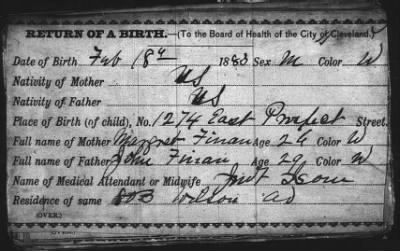 RETURN OF A BIRTH.—(To the Board of Health of the City of Cleveland.)
Date of Birth Feb 18th 1883 Sex M Color W
Nativity of Mother US
Nativity of Father US
Place of Birth (of child), No. 1274 East Prospect Street.
Full name of Mother Margret Finan Age 26 Color W
Full name of Father John Finan Age 29 Color W
Name of Medical Attendant or Midwife
Residence of same Wilson
(OVER.)